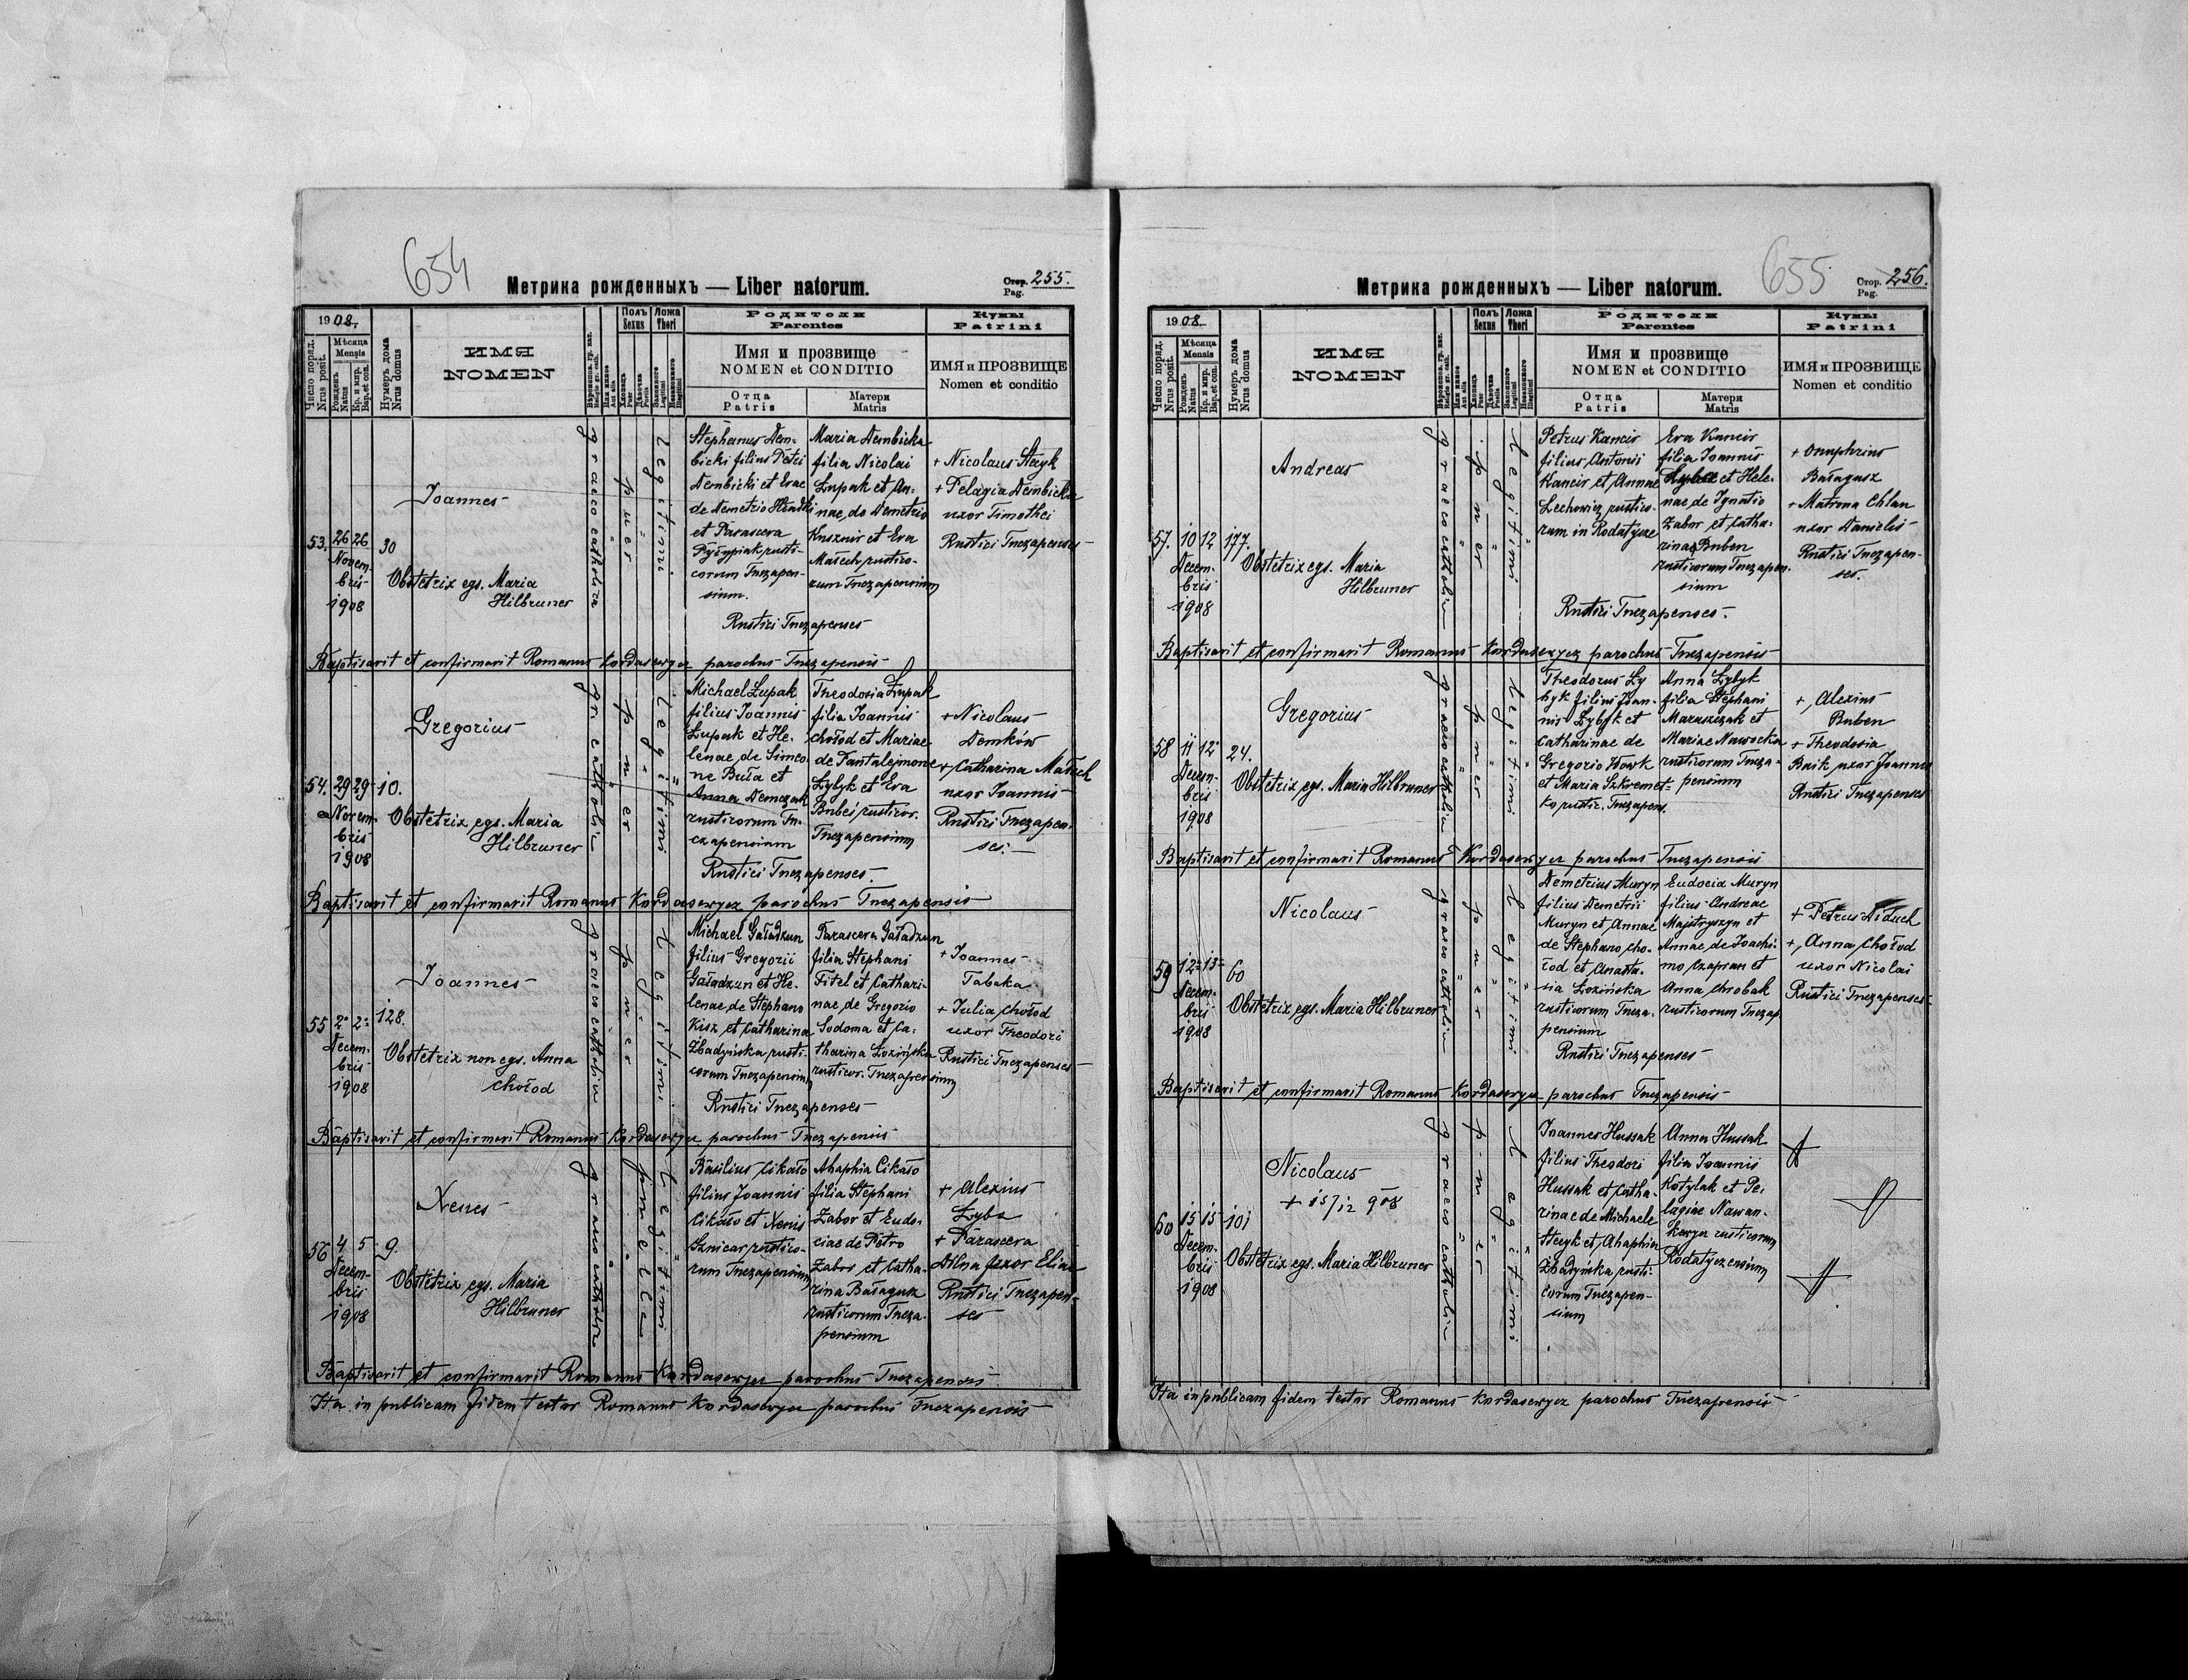 654
Метрика рожденныхъ — Liber natorum.
Стор. Pag. 255.
1908.
Число поряд. Nrus posit.
Мѣсяца Mensis
Рожденъ Natus
Кр. и мир. Bap. et con.
Нумеръ дома Nrus domus
ИМЯ
NOMEN
Полъ Sexus
Хлопецъ Puer
Дѣвочка Puella
Ложа Thori
Законного Legitimi
Незаконного Illegitimi
Родители
Parentes
Имя и прозвище
NOMEN et CONDITIO
Отца Patris
Матери Matris
Кумы
Patrini
ИМЯ и ПРОЗВИЩЕ
Nomen et conditio
53.
26 26
Novem-
bris
1908
30
Joannes
Obstetrix egs. Maria
Hilbruner
graeco catholica
puer
Legitimi
Stephanus Dem-
bicki filius Petri
Dembicki et Evae
de Demetrio
et Parascera
rusti-
corum Tuczapen-
sium.
Maria Dembicka
filia Nicolai
Łupak et An-
nae, de Demetrio
Kusznir et Eva
Małech rustico-
rum Tuczapensium
Rustici Tuczapenses
+ Nicolaus Steyk
+ Pelagia Dembicka
uxor Timothei
Rustici Tuczapenses
Baptisavit et confirmavit Romanus Kordasewycz parochus Tuczapensis
54.
29 29
Novem-
bris
1908
10.
Gregorius
Obstetrix egs. Maria
Hilbruner
puer
Legitimi
Michael Łupak
filius Joannis
Łupak et He-
lenae, de Simeo-
ne Buła et
Anna Demczak
rusticorum Tu-
czapensium
Theodosia Łupak
filia Joannis
Chołod et Mariae
de Pantalejmone
Zybyk et Eva
Buben rusticor.
Tuczapensium
Rustici Tuczapenses.
+ Nicolaus
Demków
+ Catharina Małech
uxor Joannis
Rustici Tuczapen-
ses.
Baptisavit et confirmavit Romanus Kordasewycz parochus Tuczapensis
55
2 2
Decem-
bris
1908
128.
Joannes
Obstetrix non egs. Anna
Chołod
puer
Legitimi
Michael Gaładzun
filius Gregorii
Gaładzun et He-
lenae de Stephano
Kisz et Catharina
Zbadyńska rusti-
corum Tuczapensium
Parascera Gaładzun
filia Stephani
Titel et Cathari-
nae de Gregorio
Sodoma et Ca-
tharina Łozińska
rusticor. Tuczapensium
Rustici Tuczapenses
+ Joannes
Tabaka
+ Julia Chołod
uxor Theodori
Rustici Tuczapenses
Baptisavit et confirmavit Romanus Kordasewycz parochus Tuczapensis
56
4 5
Decem-
bris
1908
9.
Xenes
Obstetrix egs. Maria
Hilbruner
puella
Legitimi
Basilius Cikało
filius Joannis
Cikało et Xenis
Sznicar rustico-
rum Tuczapensium
Ahaphia Cikało
filia Stephani
Zabor et Eudo-
ciae de Petro
Zabor et Catha-
rina Bałagusz
rusticorum Tucza-
pensium
+ Alexius
Zyba
+ Parascera
uxor Eliae
Rustici Tuczapen-
ses
Baptisavit et confirmavit Romanus Kordasewycz parochus Tuczapensis.
Ita in publicam fidem testor Romanus Kordasewycz parochus Tuczapensis
655
Метрика рожденныхъ — Liber natorum.
Стор. Pag. 256.
1908.
Число поряд. Nrus posit.
Мѣсяца Mensis
Рожденъ Natus
Кр. и мир. Bap. et con.
Нумеръ дома Nrus domus
ИМЯ
NOMEN
Полъ Sexus
Хлопецъ Puer
Дѣвочка Puella
Ложа Thori
Законного Legitimi
Незаконного Illegitimi
Родители
Parentes
Имя и прозвище
NOMEN et CONDITIO
Отца Patris
Матери Matris
Кумы
Patrini
ИМЯ и ПРОЗВИЩЕ
Nomen et conditio
57.
10 12
Decem-
bris
1908
177.
Andreas
Obstetrix egs. Maria
Hilbruner
puer
Legitimi
Petrus Kancir
filius Antonii
Kancir et Annae
Lechowicz rustico-
rum in Rodatycze
Eva Kancir
filia Joannis
et Hele-
nae de Ignatio
Zabor et Catha-
rinae Buben
rusticorum Tuczapen-
sium
Rustici Tuczapenses.
+ Onuphrius
Bałagusz
+ Matrona Chlan
uxor Danielis
Rustici Tuczapen-
ses.
Baptisavit et confirmavit Romanus Kordasewycz parochus Tuczapensis
58
11 12
Decem-
bris
1908
24.
Gregorius
Obstetrix egs. Maria Hilbruner
puer
Legitimi
Theodorus Zy-
byk filius Joan-
nis Zybyk et
Catharinae de
Gregorio Wowk
et Maria Szkremet-
ko rustic. Tuczapens.
Anna Zybyk
filia Stephani
Maruszczak et
Mariae Nawocka
rusticorum Tucza-
pensium
+ Alexius
Buben
+ Theodosia
Baik uxor Joannis
Rustici Tuczapenses
Baptisavit et confirmavit Romanus Kordasewycz parochus Tuczapensis
59
12 13
Decem-
bris
1908
60
Nicolaus
Obstetrix egs. Maria Hilbruner
puer
Legitimi
Demetrius Muryn
filius Demetrii
Muryn et Annae
de Stephano Cho-
łod et Anasta-
sia Łozińska
rusticorum Tucza-
pensium
Eudocia Muryn
filius Andreae
Majstryszyn et
Annae de Joachi-
mo Czapran et
Anna Chrobak
rusticorum Tuczap
Rustici Tuczapenses
+ Petrus Diduch
+ Anna Chołod
uxor Nicolai
Rustici Tuczapenses
Baptisavit et confirmavit Romanus Kordasewycz parochus Tuczapensis
60
15 15
Decem-
bris
1908
101
Nicolaus
+ 15/12 908
Obstetrix egs. Maria Hilbruner
graeco catholica
puer
Legitimi
Joannes Hussak
filius Theodori
Hussak et Catha-
rinae de Michaele
Steyk et Ahaphia
Zbadyńska rusti-
corum Tuczapen-
sium
Anna Hussak
filia Joannis
Kotylak et Pe-
lagiae Nawan-
kewycz rusticorum
Rodatyczensium
Ita in publicam fidem testor Romanus Kordasewycz parochus Tuczapensis